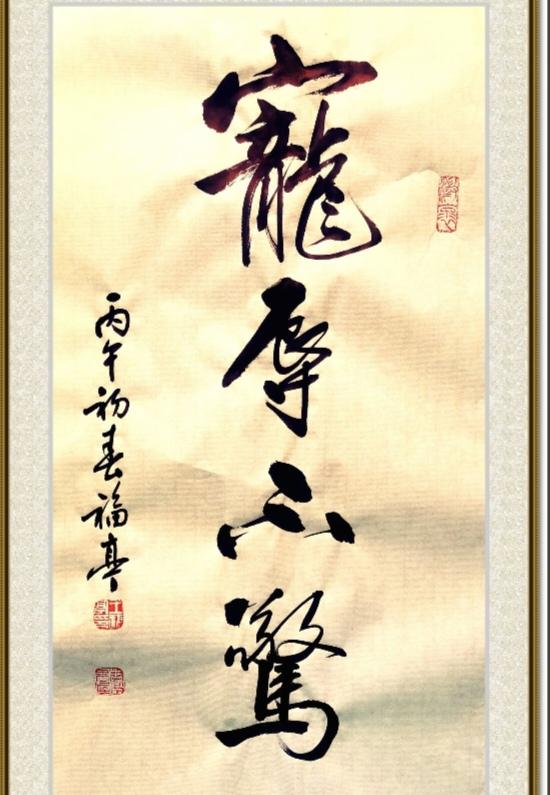 寵辱不驚
丙午初春福亭